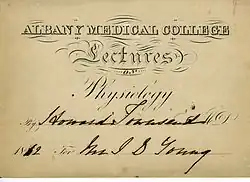 ALBANY MEDICAL COLLEGE
Lectures
ON
Physiology
By Howard Townsend M.D.
1862 For Mr I S Young